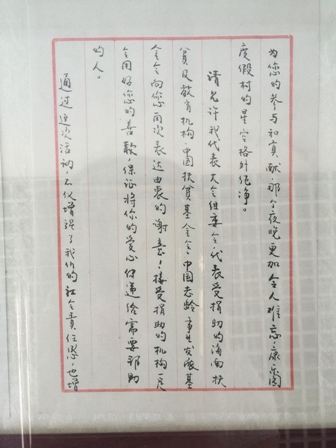 为您的参与和贡献，那个夜晚更加令人难忘，康乐园
度假村的星空格外纯净。
请允许我代表大会组委会，代表受捐助的海南扶
贫及教育机构、中国扶贫基金会、中国老龄事业发展基
金会向您再次表达由衷的谢意！接受捐助的机构一定
会用好您的善款，保证将你的爱心传递给需要帮助
的人。
通过这次活动，不仅增强了我们的社会责任感，也增